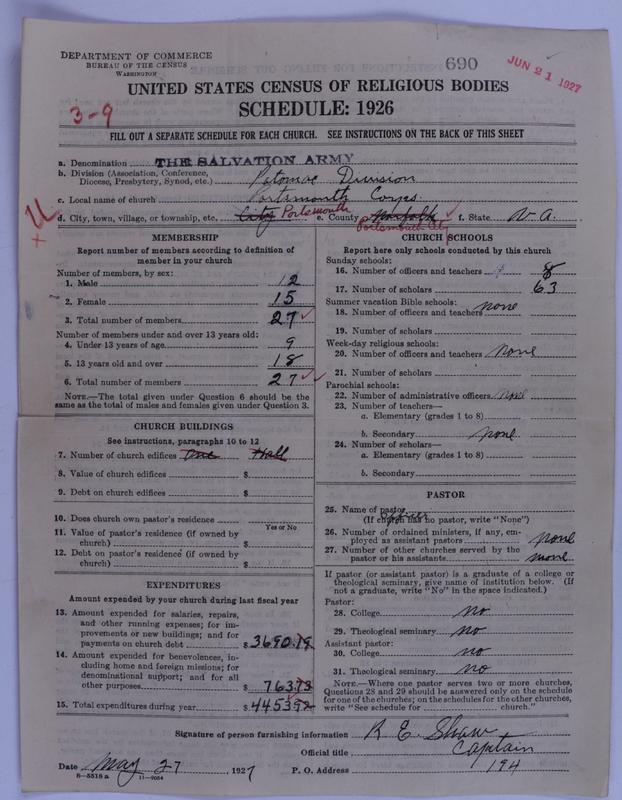 DEPARTMENT OF COMMERCE
BUREAU OF THE CENSUS
WASHINGTON
690
JUN 21 1927
UNITED STATES CENSUS OF RELIGIOUS BODIES
SCHEDULE: 1926
3-9
FILL OUT A SEPARATE SCHEDULE FOR EACH CHURCH. SEE INSTRUCTIONS ON THE BACK OF THIS SHEET
a. Denomination THE SALVATION ARMY
b. Division (Association, Conference, Diocese, Presbytery, Synod, etc.) Potomac Division
c. Local name of church Portsmouth Corps
d. City, town, village, or township, etc. City Portsmouth e. County Norfolk f. State Va.
Portsmouth City
MEMBERSHIP
Report number of members according to definition of
member in your church
Number of members, by sex:
1. Male 12
2. Female 15
3. Total number of members 27
Number of members under and over 13 years old:
4. Under 13 years of age 9
5. 13 years old and over 18
6. Total number of members 27
NOTE.—The total given under Question 6 should be the
same as the total of males and females given under Question 3.
CHURCH BUILDINGS
See instructions, paragraphs 10 to 12
7. Number of church edifices One Hall
8. Value of church edifices $
9. Debt on church edifices $
10. Does church own pastor's residence
Yes or No
11. Value of pastor's residence (if owned by
church) $
12. Debt on pastor's residence (if owned by
church) $
EXPENDITURES
Amount expended by your church during last fiscal year
13. Amount expended for salaries, repairs,
and other running expenses; for im-
provements or new buildings; and for
payments on church debt $ 3690.19
14. Amount expended for benevolences, in-
cluding home and foreign missions; for
denominational support; and for all
other purposes $ 763.73
15. Total expenditures during year $ 4453.92
CHURCH SCHOOLS
Report here only schools conducted by this church
Sunday schools:
16. Number of officers and teachers 8
17. Number of scholars 63
Summer vacation Bible schools:
18. Number of officers and teachers none
19. Number of scholars
Week-day religious schools:
20. Number of officers and teachers none
21. Number of scholars
Parochial schools:
22. Number of administrative officers none
23. Number of teachers—
a. Elementary (grades 1 to 8)
b. Secondary none
24. Number of scholars—
a. Elementary (grades 1 to 8)
b. Secondary
PASTOR
25. Name of pastor
(If church has no pastor, write "None")
officer
26. Number of ordained ministers, if any, em-
ployed as assistant pastors none
27. Number of other churches served by the
pastor or his assistants none
If pastor (or assistant pastor) is a graduate of a college or
theological seminary, give name of institution below. (If
not a graduate, write "No" in the space indicated.)
Pastor:
28. College no
29. Theological seminary no
Assistant pastor:
30. College no
31. Theological seminary no
NOTE.—Where one pastor serves two or more churches,
Questions 28 and 29 should be answered only on the schedule
for one of the churches; on the schedules for the other churches,
write "See schedule for church."
Signature of person furnishing information R E Shaw
Official title Captain
Date May 27, 1927 P. O. Address 194
8—5518 a 11—9054